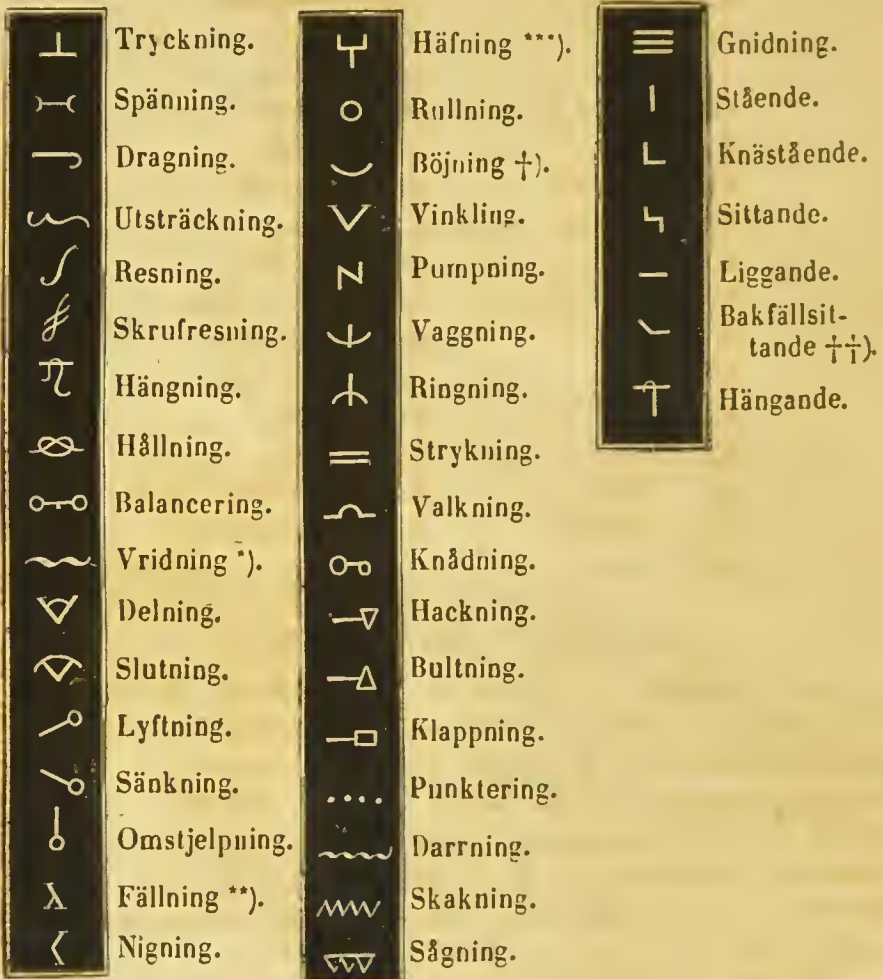 Tryckning.
Spänning.
Dragning.
Utsträckning.
Resning.
Skrufresning.
Hängning.
Hållning.
Balancering.
Vridning *).
Delning.
Slutning.
Lyftning.
Sänkning.
Omstjelpning.
Fällning **).
Nigning.
Häfning ***).
Rullning.
Böjning †).
Vinkling.
Pumpning.
Vaggning.
Ringning.
Strykning.
Valkning.
Knådning.
Hackning.
Bultning.
Klappning.
Punktering.
Darrning.
Skakning.
Sågning.
Gnidning.
Stående.
Knästående.
Sittande.
Liggande.
Bakfällsit-
tande ††).
Hängande.